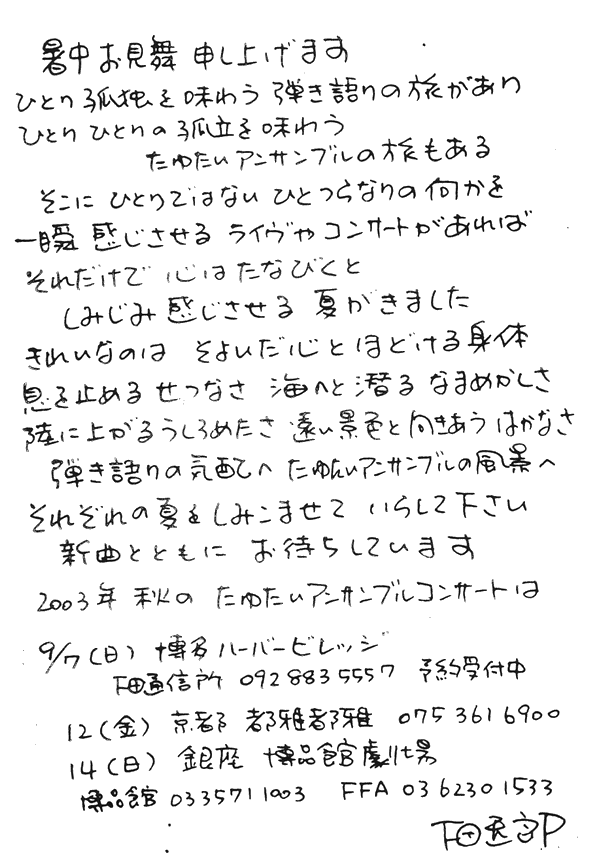 暑中お見舞 申し上げます
ひとり孤独を味わう 弾き語りの旅があり
ひとりひとりの孤立を味わう
たゆたいアンサンブルの旅もある
そこに ひとりではない ひとつらなりの何かを
一瞬 感じさせる ライヴやコンサートがあれば
それだけで 心はたなびくと
しみじみ感じさせる 夏がきました
きれいなのは そよいだ心とほどける身体
息を止める せつなさ 海へと潜る なまめかしさ
陸に上がるうしろめたさ 遠い景色と向きあう はかなさ
弾き語りの気配へ たゆたいアンサンブルの風景へ
それぞれの夏をしみこませて いらして下さい
新曲とともに お待ちしています
2003年 秋の たゆたいアンサンブルコンサートは
9/7(日) 博多ハーバービレッジ
下田通信所 092 883 5557 予約受付中
12(金) 京都 都雅都雅 075 361 6900
14(日) 銀座 博品館劇場
博品館 03 3571 1003 FFA 03 6230 1533
下田逸郎